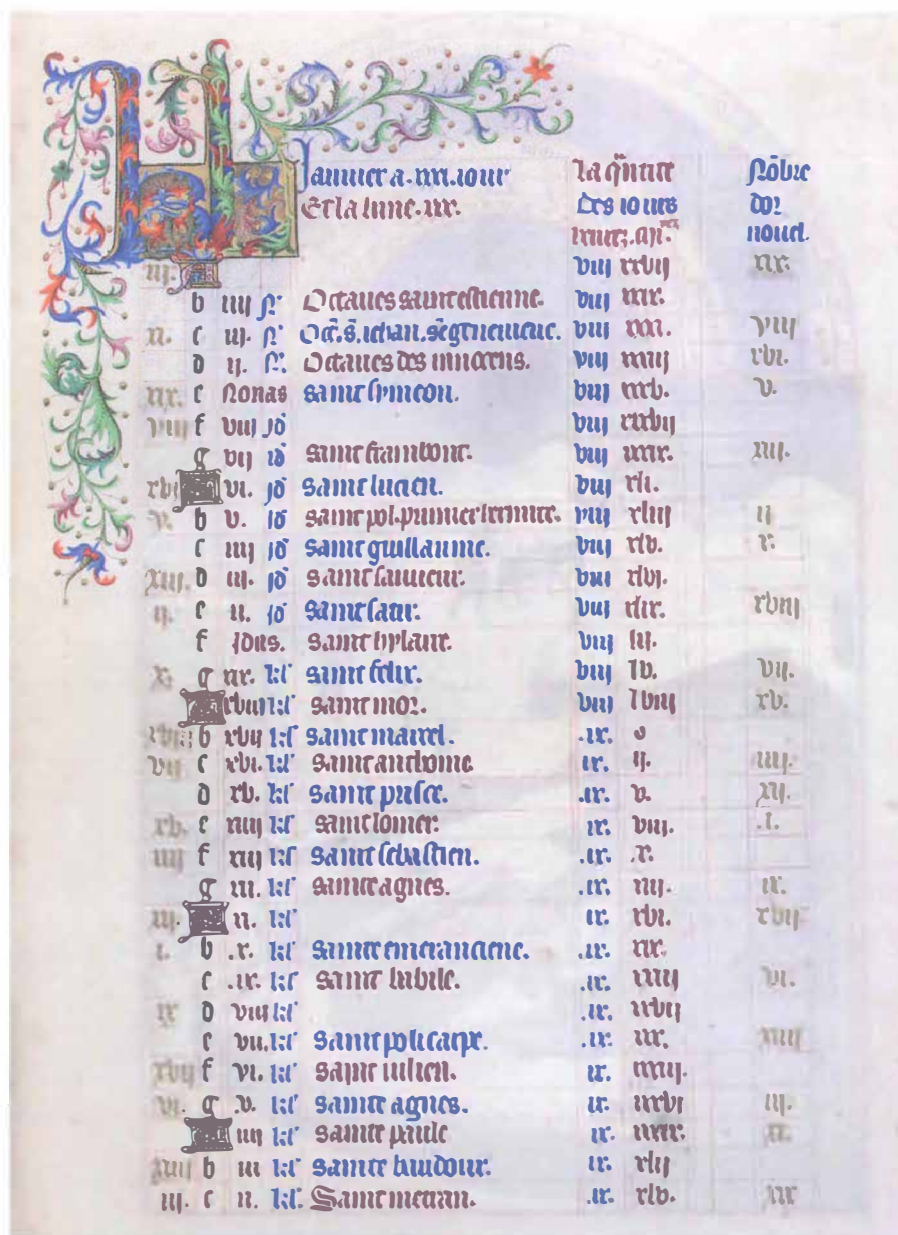 Januier a .xxxi. iour La q̃ntite Nõbre
Et la lune .xxx. des iours dor
nouel.
iij. A viij xxvij xix.
b iiij N̄ Octaues saint estienne. viij xxix.
xi. c iij. N̄ Oct̃. s̃. iehan. s̃e geneuieue. viij xxxi. viij
d ij. N̄. Octaues des innocens. viij xxxiij xvi.
xix. e Nonas saint symeon. viij xxxv. v.
viij f viij id̃ viij xxxvij
g vij id̃ saint frambout. viij xxxix. xiij.
xvi A vi. id̃ saint lucien. viij xli.
v. b v. id̃ saint pol. premier hermite. viij xliij ij
c iiij id̃ saint guillaume. viij xlv. x.
xiij. d iij. id̃ saint sauueur. viij xlvj.
ij. e ij. id̃ saint satir. viij xlix. xviij
f Idus. saint hylaire. viij lij.
x. g xix. kl̃ saint felix. viij lv. vij.
A xviij kl̃ saint mor. viij lviij xv.
xviij b xvij kl̃ saint marcel. .ix. o
vij c xvi. kl̃ saint anthoine ix. ij. iiij.
d xv. kl̃ sainte prisce. .ix. v. xij.
xv. e xiiij kl̃ saint lomer. ix. viij. .i.
iiij f xiij kl̃ saint sebastien. .ix. .x.
g xij. kl̃ sainte agnes. .ix. xiij. ix.
xij. A xi. kl̃ ix xvi. xvij
i. b .x. kl̃ sainte emeranciene. .ix. xix.
c .ix. kl̃ saint babile. .ix. xxiiij vi.
ix d viij kl̃ .ix. xxvij
e vij. kl̃ saint policarpe. .ix. xxx. xiiij
xvij f vi. kl̃ saint iulien. ix. xxxiij.
vi. g .v. kl̃ sainte agnes. ix. xxxvi iij.
A iiij kl̃ sainte paule ix. xxxix. xi.
xiiij b iij kl̃ sainte baudour. ix. xlij
iij. c ij. kl̃. Saint metran. .ix. xlv. xix